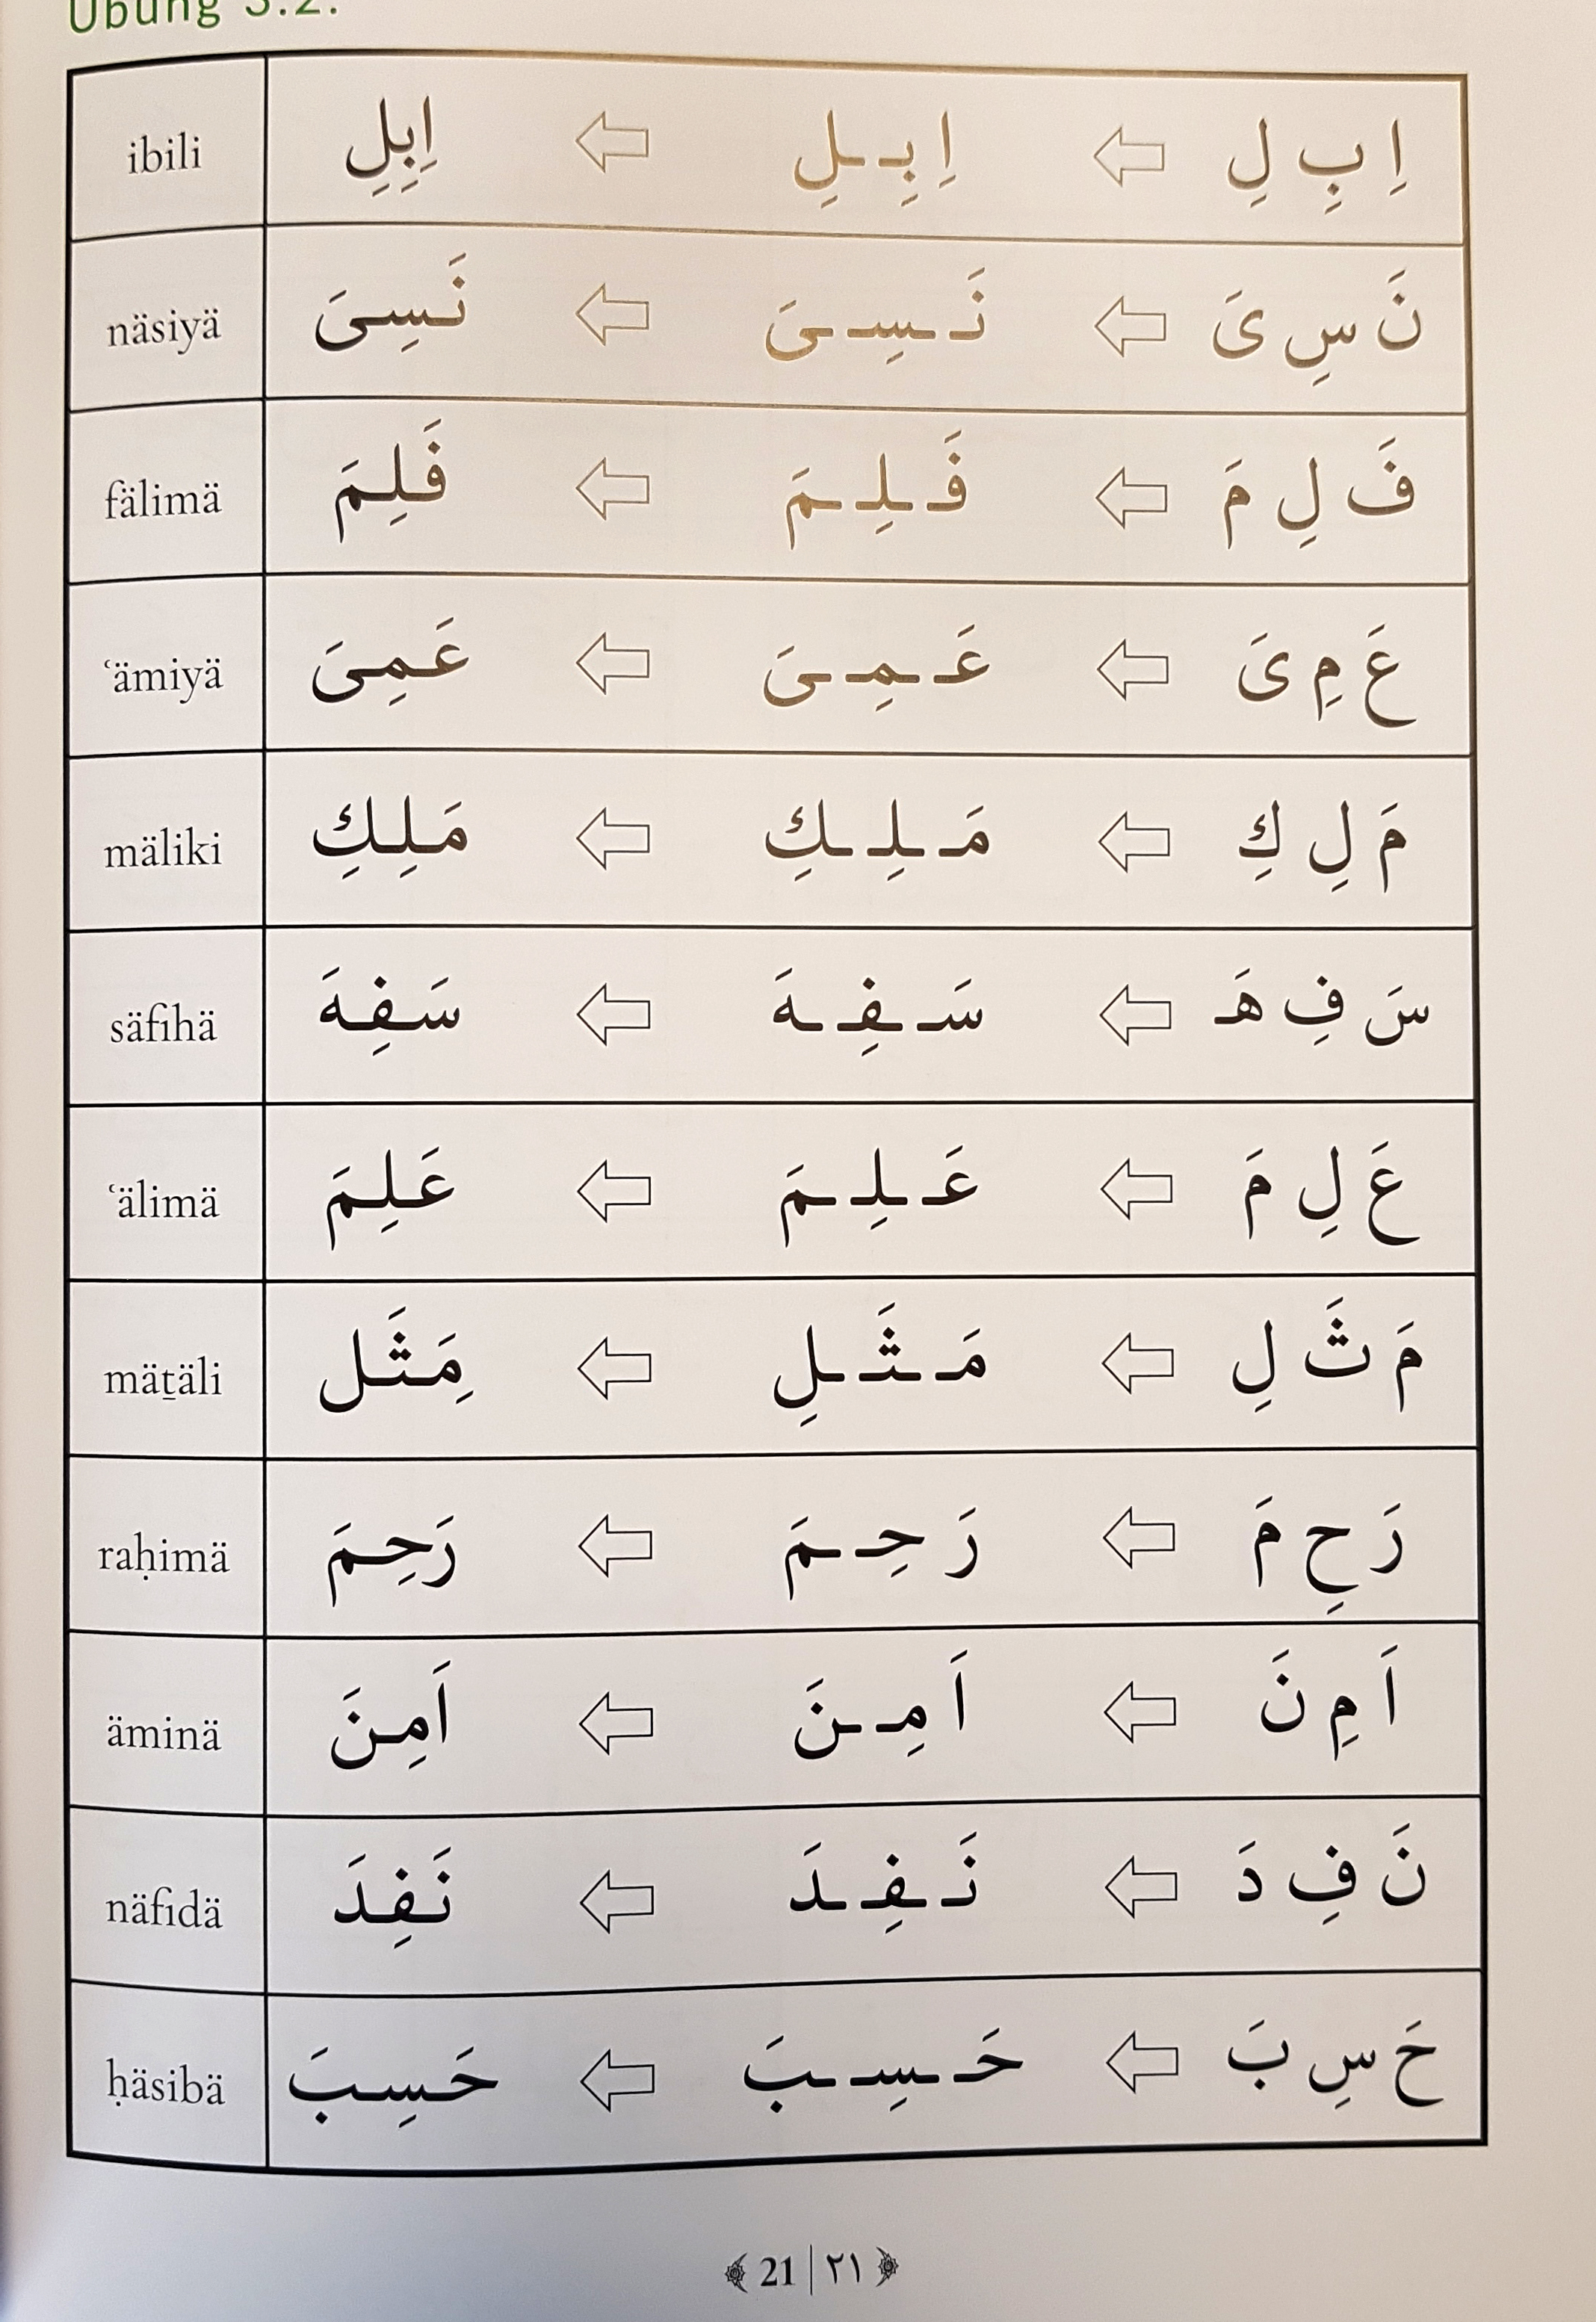 Übung 3.2.
اِ بِ لِ اِ بِـ ـلِ اِبِلِ ibili
نَ سِ ىَ نَـ ـسِـ ـىَ نَسِىَ näsiyä
فَ لِ مَ فَـ ـلِـ ـمَ فَلِمَ fälimä
عَ مِ ىَ عَـ ـمِـ ـىَ عَمِىَ ʿämiyä
مَ لِ كِ مَـ ـلِـ ـكِ مَلِكِ mäliki
سَ فِ هَـ سَـ ـفِـ ـهَ سَفِهَ säfihä
عَ لِ مَ عَـ ـلِـ ـمَ عَلِمَ ʿälimä
مَ ثَ لِ مَـ ـثَـ ـلِ مَِثَل mäṯäli
رَ حِ مَ رَ حِـ ـمَ رَحِمَ raḥimä
اَ مِ نَ اَ مِـ ـنَ اَمِنَ äminä
نَ فِ دَ نَـ ـفِـ ـدَ نَفِدَ näfidä
حَ سِ بَ حَـ ـسِـ ـبَ حَسِبَ ḥäsibä
21 | ٢١